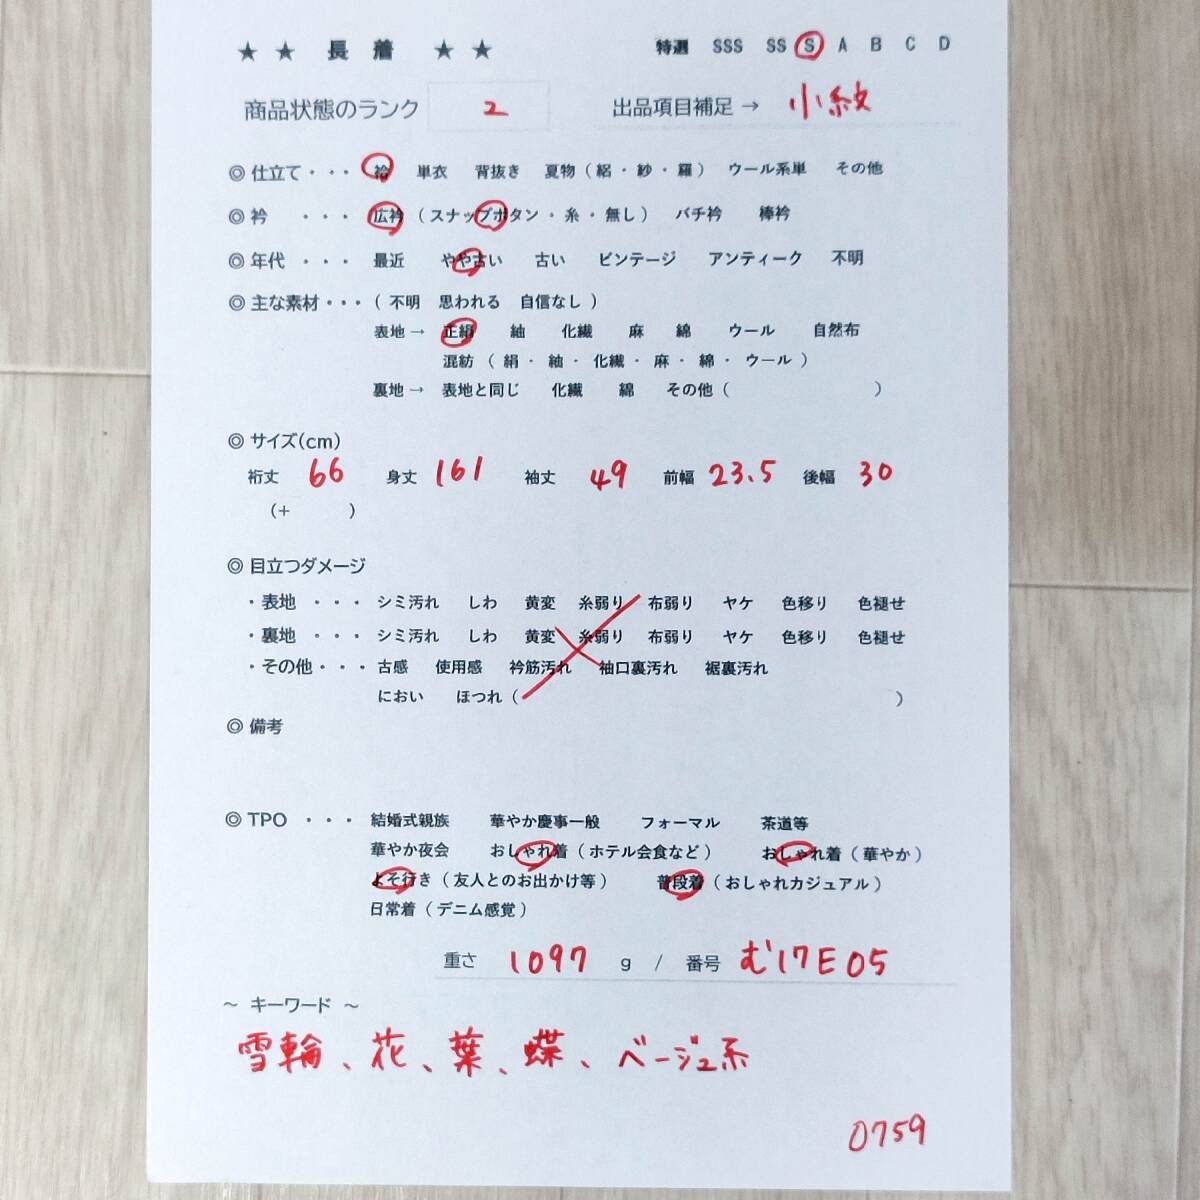 ★ ★ 長 着 ★ ★ 特選 SSS SS S A B C D
商品状態のランク 2 出品項目補足→ 小紋
◎ 仕立て・・・ 袷 単衣 背抜き 夏物（絽・紗・羅） ウール系単 その他
◎ 衿 ・・・ 広衿（スナップボタン・糸・無し） バチ衿 棒衿
◎ 年代 ・・・ 最近 やや古い 古い ビンテージ アンティーク 不明
◎ 主な素材・・・（不明 思われる 自信なし）
表地→ 正絹 紬 化繊 麻 綿 ウール 自然布
混紡（絹・紬・化繊・麻・綿・ウール）
裏地→ 表地と同じ 化繊 綿 その他（ ）
◎ サイズ(cm)
裄丈 66 身丈 161 袖丈 49 前幅 23.5 後幅 30
（+ ）
◎ 目立つダメージ
・表地 ・・・ シミ汚れ しわ 黄変 糸弱り 布弱り ヤケ 色移り 色褪せ
・裏地 ・・・ シミ汚れ しわ 黄変 糸弱り 布弱り ヤケ 色移り 色褪せ
・その他・・・ 古感 使用感 衿筋汚れ 袖口裏汚れ 裾裏汚れ
におい ほつれ（ ）
◎ 備考
◎ TPO ・・・ 結婚式親族 華やか慶事一般 フォーマル 茶道等
華やか夜会 おしゃれ着（ホテル会食など） おしゃれ着（華やか）
よそ行き（友人とのお出かけ等） 普段着（おしゃれカジュアル）
日常着（デニム感覚）
重さ 1097 g / 番号 む17E05
～ キーワード ～
雪輪、花、葉、蝶、ベージュ系
0759